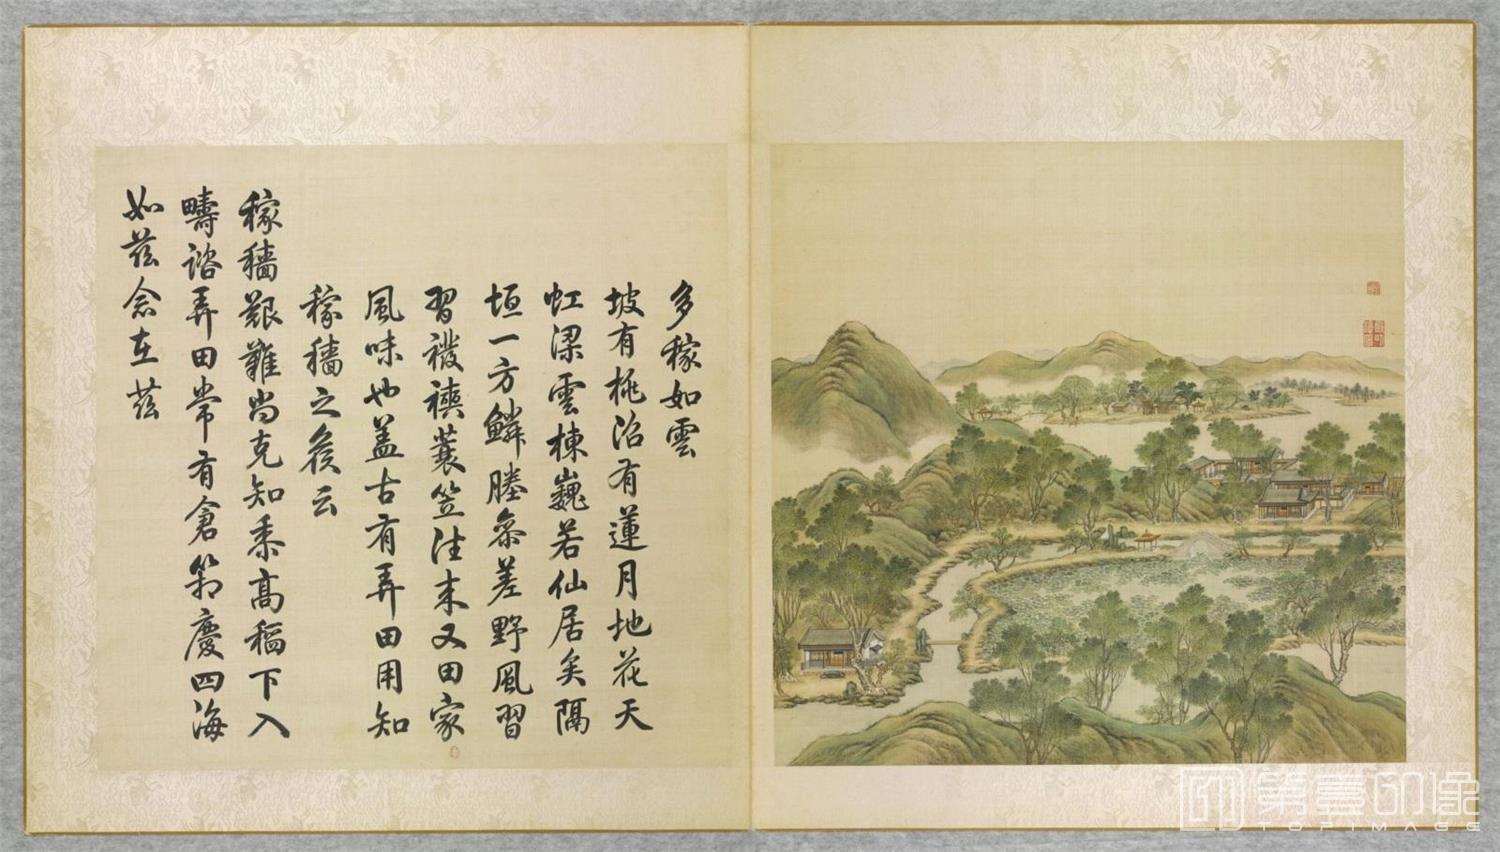 多稼如雲
坡有桃沼有蓮月地花天
虹梁雲棟巍若仙居矣隔
垣一方鱗塍參差野風習
習襏襫蓑笠往來又田家
風味也蓋古有弄田用知
稼穡之候云
稼穡艱難尚克知黍高稻下入
疇諮弄田常有倉箱慶四海
如茲念在茲
第壹印像
TOPIMAGE